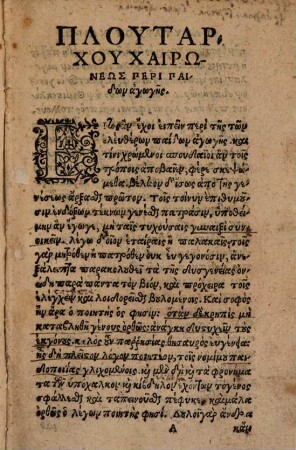 ΠΛΟΥΤΑΡ-
ΧΟΥ ΧΑΙΡΩ-
ΝΕΩΣ ΠΕΡΙ ΠΑΙ-
δων ἀγωγῆς.
ἔχοι εἰπεῖν περὶ τῆς τῶν
ἐλευθέρων παίδων ἀγωγῆς. καὶ
τίνι χρώμενοι σπουδαῖοι ἂν τοὺς
τρόπους ἀποβαῖεν, φέρε σκεψώ-
μεθα. Βέλτιον δ' ἴσως ἀπὸ τῆς γε-
νέσεως ἄρξασθαι πρῶτον. Τοῖς τοίνυν ἐπιθυμοῦ-
σιν ἐνδόξων τέκνων γενέσθαι πατράσιν, ὑποθεί-
μην ἂν ἔγωγε, μὴ ταῖς τυχούσαις γυναιξὶ συν-
οικεῖν. λέγω δ' οἷον ἑταίραις ἢ παλακαῖς. τοῖς
γὰρ μητρόθεν ἢ πατρόθεν οὐκ εὖ γεγονόσιν, ἀνε-
ξάλειπτα παρακολουθεῖ τὰ τῆς δυσγενείας ὀνεί-
δη παρὰ πάντα τὸν βίον, καὶ πρόχειρα τοῖς
ἐλέγχειν καὶ λοιδορεῖσθαι βουλομένοις. Καὶ σοφὸς
ἦν ἄρα ὁ ποιητὴς ὅς φησιν: ὅταν δὲ κρηπὶς μὴ
καταβληθῇ γένους ὀρθῶς: ἀνάγκη δυστυχεῖν τοὺς
ἐκγόνους. καλὸς οὖν παῤῥησίας θησαυρὸς εὐγένεια,
ἧς δὴ πλεῖστον λόγον ποιητέον, τοῖς νομίμου παι-
δοποιίας γλιχομένοις. καὶ μὲν δὴ καὶ τὰ φρονήμα-
τα τῶν ὑπόχαλκον καὶ κίβδηλον ἐχόντων τὸ γένος
σφάλλεσθαι καὶ ταπεινοῦσθαι πέφυκε. καὶ μάλα
ὀρθῶς ὁ λέγων ποιητής φησι. Δουλοῖ γὰρ ἄνδρα
A κἂν